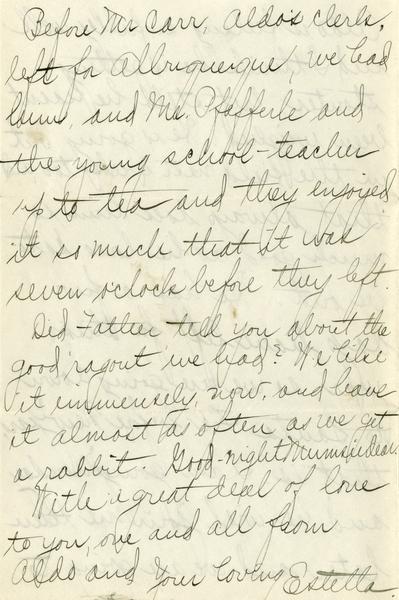 Before Mr Carr, Aldo's clerk,
left for Albuquerque, we had
him, and Mr. Pfefferle and
the young school-teacher
up to tea and they enjoyed
it so much that it was
seven o'clock before they left.
Did Father tell you about the
good ragout we had? We like
it immensely, now, and have
it almost as often as we get
a rabbit. Good-night Mumsie Dear.
With a great deal of love
to you, one and all from
Aldo and Your loving Estella.